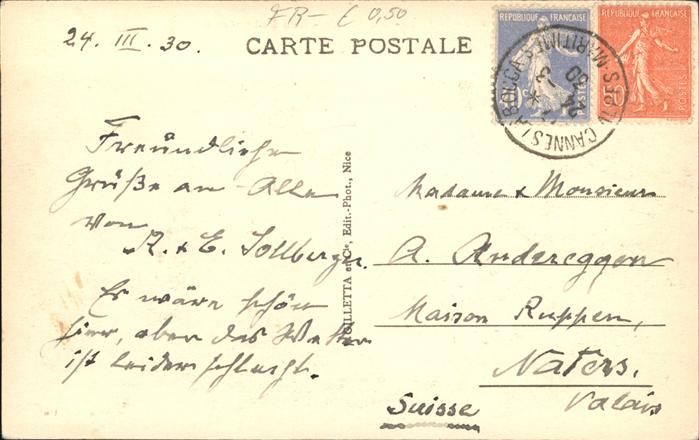 FR- € 0,50
24. III. 30.
CARTE POSTALE
REPUBLIQUE FRANÇAISE
POSTES
REPUBLIQUE FRANÇAISE
POSTES
CANNES LA BOCCA
ALPES-MARITIMES
24 - 3
30
Freündliche
Grüße an Alle
von
R. & E. Sollberger.
Es wäre schön
hier, aber das Wetter
ist leider schlecht.
GILLETTA et Cie, Edit.-Phot., Nice
Madame & Monsieur
A. Andereggen
Maison Ruppen,
Naters.
Valais
Suisse